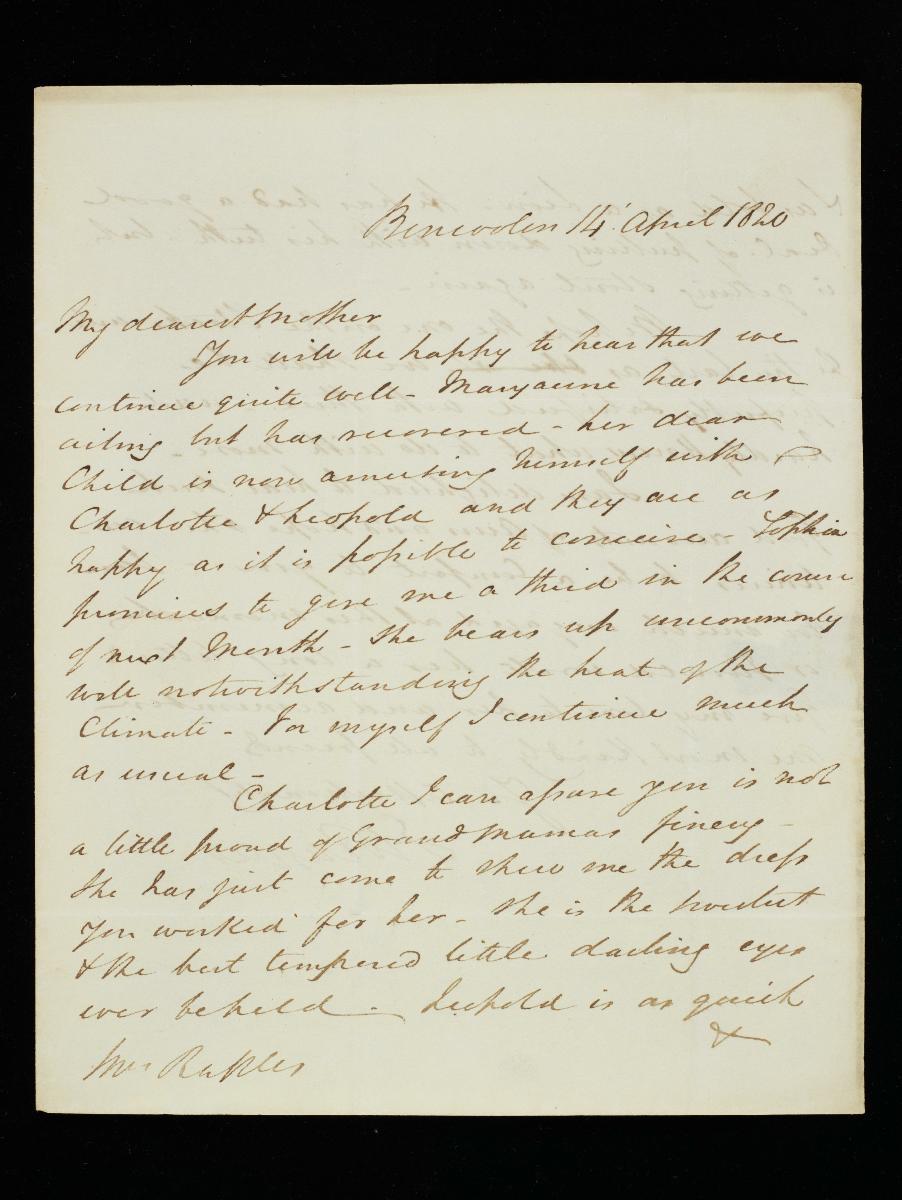 Bencoolen 14 April 1820
My dearest Mother
You will be happy to hear that we
continue quite well - Maryanne has been
ailing but has recovered - her dear
Child is now amusing himself with
Charlotte & Leopold and they are as
happy as it is possible to conceive - Sophia
promises to give me a third in the course
of next Month - She bears up uncommonly
well notwithstanding the heat of the
Climate - For myself I continue much
as usual -
Charlotte I can assure you is not
a little proud of Grandmamas finery -
She has just come to shew me the dress
you worked for her - She is the sweetest
& the best tempered little darling eyes
ever beheld - Leopold is as quick
&
Mrs Raffles